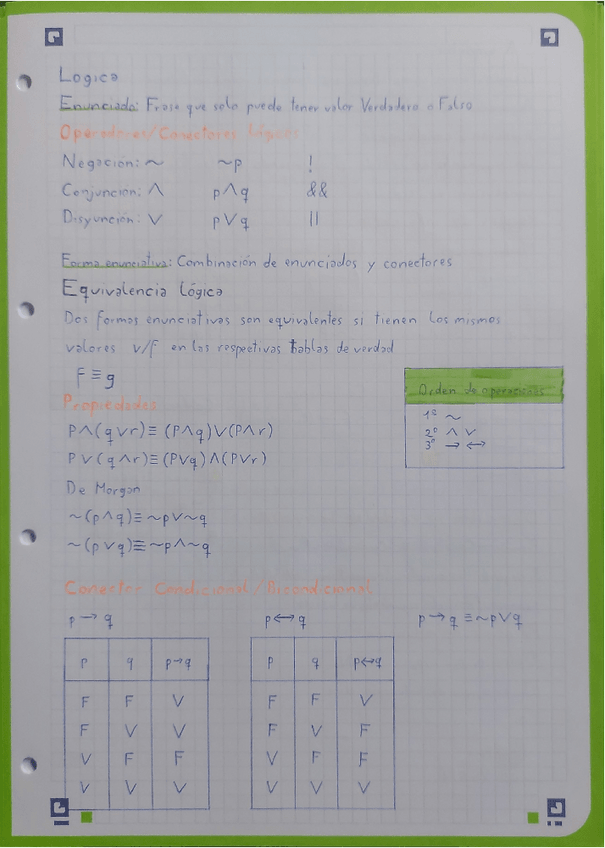 Logica
Enunciado: Frase que solo puede tener valor Verdadero o Falso
Operadores/Conectores Lógicos
Negación: ~ ~p !
Conjuncion: ∧ p∧q &&
Disyunción: ∨ p∨q ||
Forma enunciativa: Combinación de enunciados y conectores
Equivalencia Lógica
Dos formas enunciativas son equivalentes si tienen los mismos
valores v/f en las respectivas tablas de verdad
f ≡ g
Propiedades
p∧(q∨r)≡(p∧q)∨(p∧r)
p∨(q∧r)≡(p∨q)∧(p∨r)
De Morgan
~(p∧q)≡~p∨~q
~(p∨q)≡~p∧~q
Orden de operaciones
1º ~
2º ∧ ∨
3º → ↔
Conector Condicional/Bicondicional
p→q p↔q p→q ≡~p∨q
p q p→q
F F V
F V V
V F F
V V V
p q p↔q
F F V
F V F
V F F
V V V